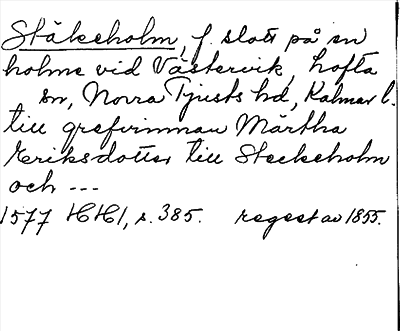 Stäkeholm, f. slott på en
holme vid Västervik, Lofta
sn, Norra Tjusts hd, Kalmar l.
till grefvinnan Märtha
Eriksdotter till Steckeholm
och ---
1577 HH1, s. 385. regest av 1855.